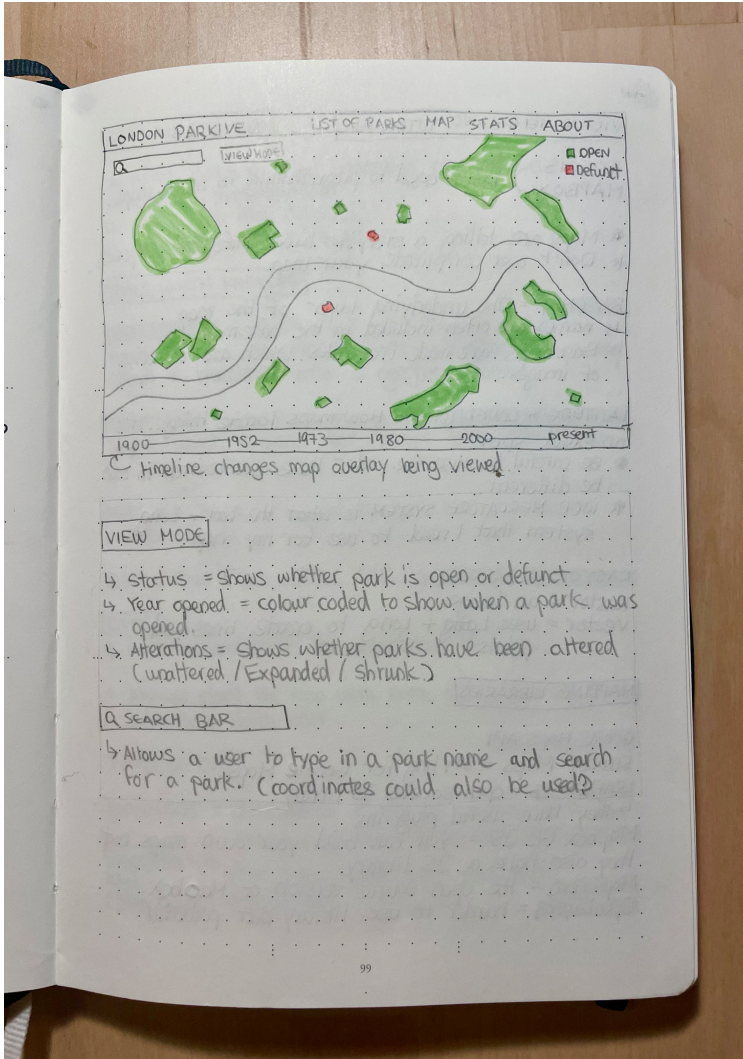 LONDON PARKIVE LIST OF PARKS MAP STATS ABOUT
VIEW MODE
OPEN
Defunct
1900 1952 1973 1980 2000 present
timeline changes map overlay being viewed.
VIEW MODE
↳ Status = shows whether park is open or defunct
↳ Year opened. = colour coded to show when a park was
opened.
↳ Alterations = shows whether parks have been altered
(unaltered / Expanded / Shrunk)
SEARCH BAR
↳ Allows a user to type in a park name and search
for a park. (coordinates could also be used?
99